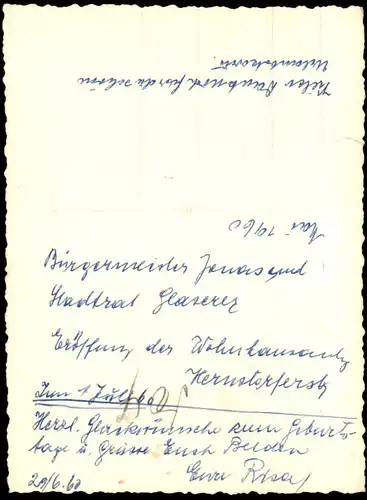 Vielen Dank noch für die schöne
Urlaubskarte.
Mai 1960
Bürgermeister Jonas und
Stadtrat Glaserer
Eröffnung der Wohnhausanlg
Hernstorferstr
Zum 1 Juli 60
Herzl. Glückwünsche zum Geburts-
tage u. Grüsse Euch Beiden
Eure Risa
29/6.60